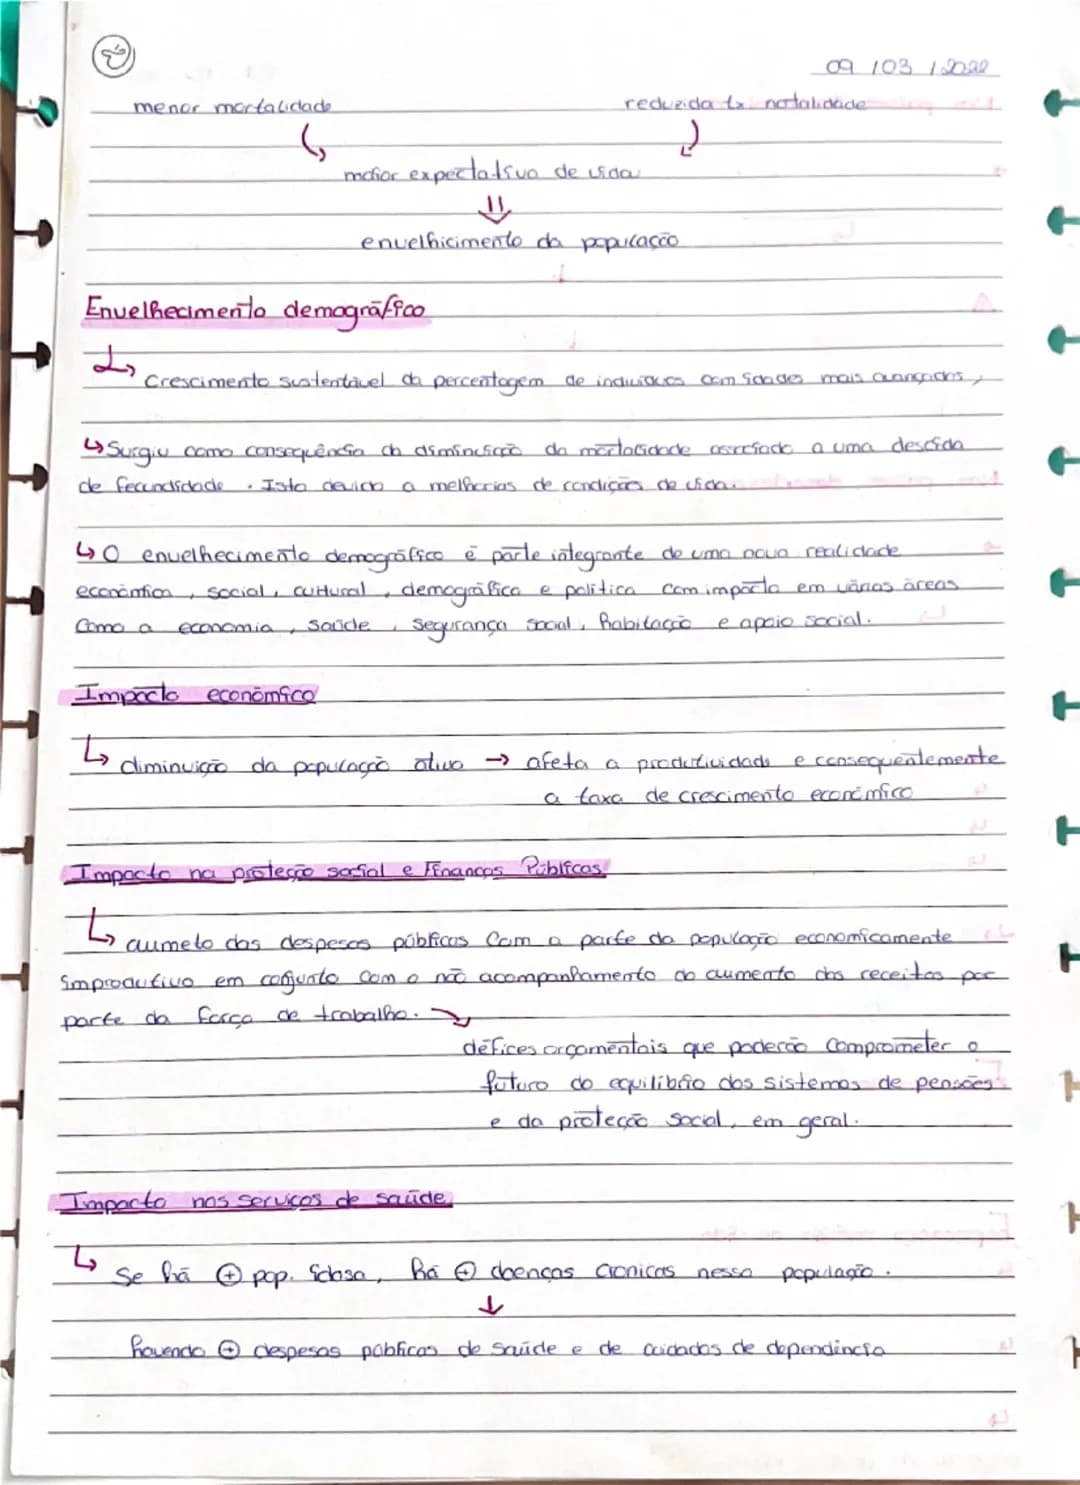 09 / 03 / 2022
menor mortalidade reduzida tx natalidade
maior expectativa de vida
envelhicimento da população
Envelhecimento demográfico
Crescimento sustentável da percentagem de indivíduos com idades mais avançadas,
↳ Surgiu como consequência da diminuição da mortalidade associado a uma descida
de fecundidade. Isto devido a melhorias de condições de vida.
↳ O envelhecimento demográfico é parte integrante de uma nova realidade
económica, social, cultural, demográfica e política com impacto em várias áreas
como a economia, saúde, segurança social, habitação e apoio social.
Impacto económico
↳ diminuição da população ativa → afeta a produtividade e consequentemente
a taxa de crescimento económico
Impacto na proteção social e Finanças Públicas
↳ aumeto das despesas públicas com a parte da população economicamente
improdutiva em conjunto com o não acompanhamento do aumento das receitas por
parte da força de trabalho. →
défices orçamentais que poderão comprometer o
futuro do equilíbrio dos sistemas de pensões
e da proteção social, em geral.
Impacto nos serviços de saúde
↳ Se há ⊕ pop. idosa, há ⊕ doenças cronicas nessa população.
↓
havendo ⊕ despesas públicas de saúde e de cuidados de dependência